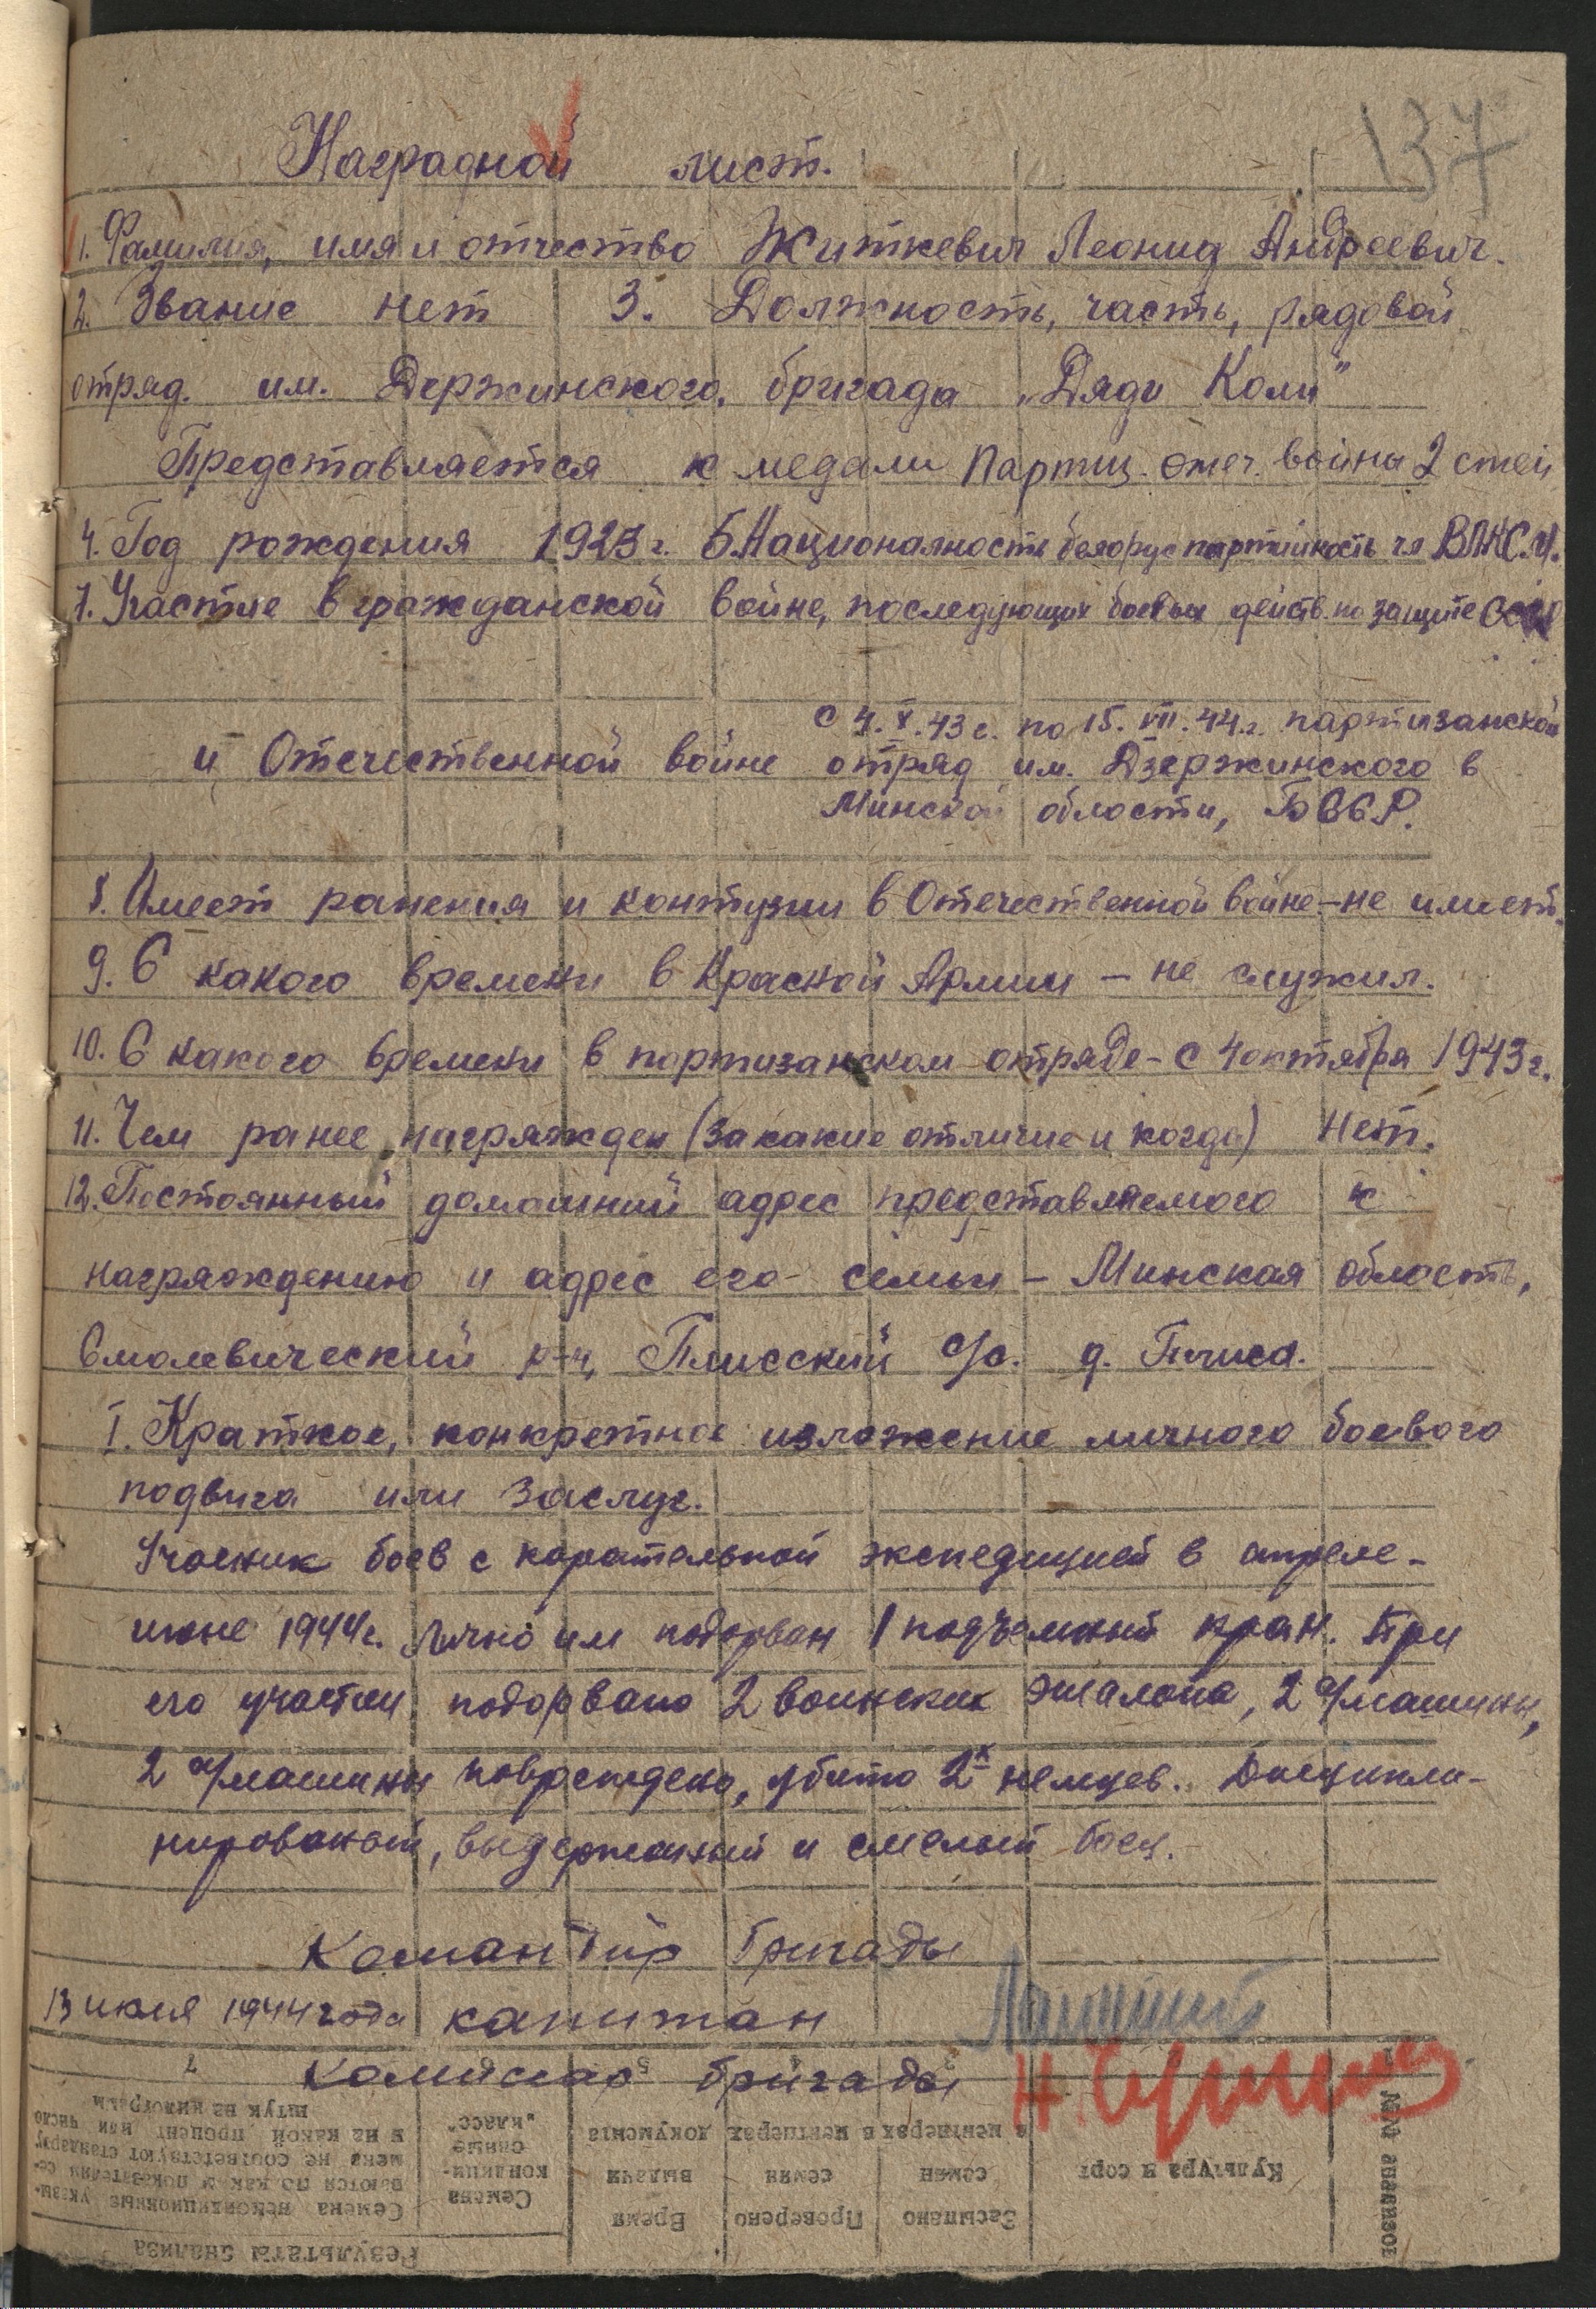 137
Наградной лист.
1. Фамилия, имя и отчество Житкевич Леонид Андреевич.
2. Звание нет 3. Должность, часть, рядовой
отряд. им. Держинского, бригада „Дяди Коли"
Представляется к медали Партиз. отеч. войны 2 степ
4. Год рождения 1923 г. 5. Национальность белорус партийность чл ВЛКС.М.
7. Участие в гражданской войне, последующих боевых действ. по защите
с 4.X.43 г. по 15.VII.44.г. партизанской
и Отечественной войне отряд им. Дзержинского в
Минской области, БССР.
8. Имеет ранения и контузии в Отечественной войне - не имеет.
9. С какого времени в Красной Армии - не служил.
10. С какого времени в партизанском отряде - с 4 октября 1943 г.
11. Чем ранее награжден (за какие отличие и когда) Нет.
12. Постоянный домашний адрес представляемого к
награждению и адрес его семьи - Минская область,
Смолевический р-н, Плисский с/с. д. Плиса.
I. Краткое, конкретное изложение личного боевого
подвига или заслуг.
Участник боев с карательной экспедицией в апреле-
июне 1944 г. Лично им подорван 1 подъемный кран. При
его участии подорвано 2 воинских эшалона, 2 а/машины,
2 а/машины повреждено, убито 2х немцев. Дисципли-
нированый, выдержаный и смелый боец.
Командир бригады
13 июля 1944 года капитан
Комиссар бригады
7 5
Результаты анализа
Семена некондиционные указы-
ваются по каким показателям се-
мена не соответствуют стандарту
и на какой процент или число
штук на килограмм
Семена
кондици-
онные
„класс"
Время
выдачи
документа
Проверено
семян
в центнерах
Засыпано
семян
в центнерах
Культура и сорт
анализов